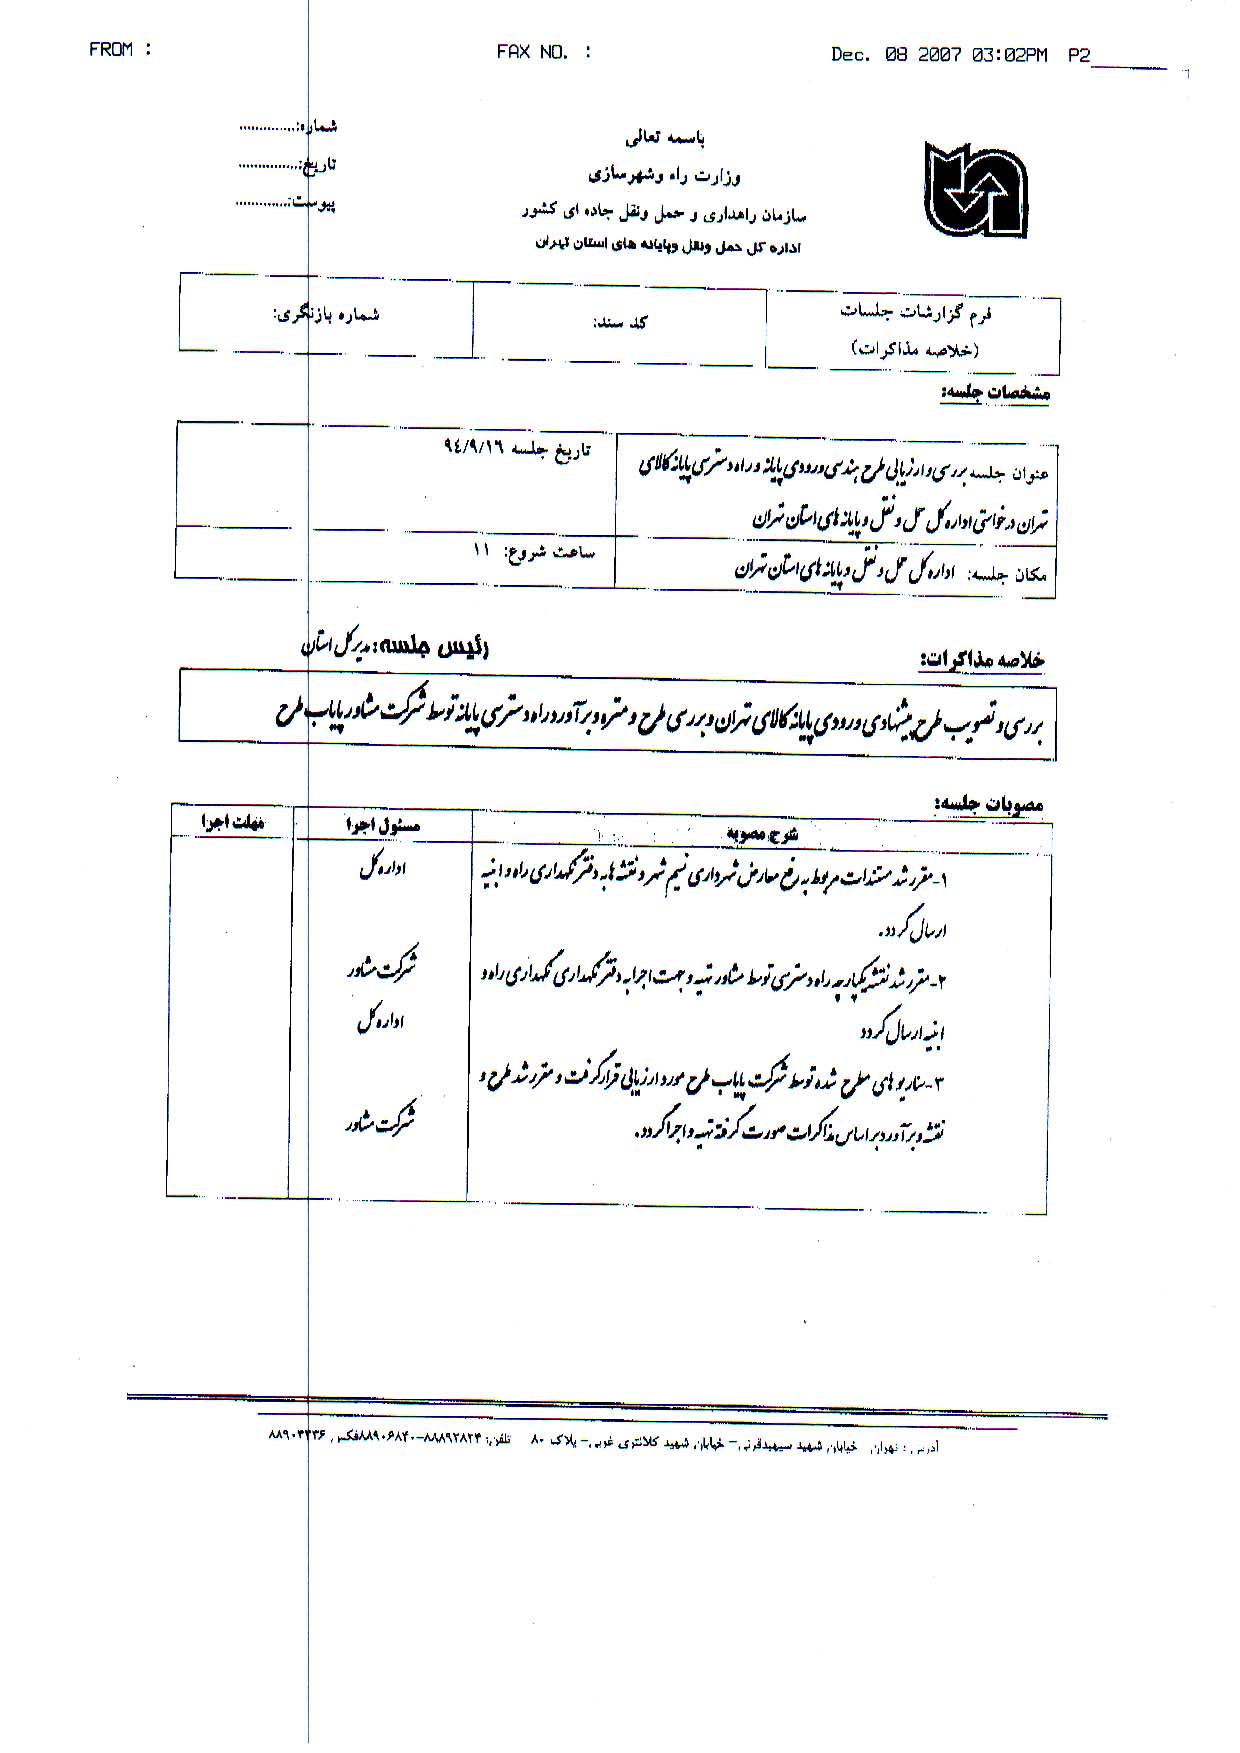 FROM :
FAX NO. :
Dec. 08 2007 03:02PM P2
باسمه تعالی
وزارت راه وشهرسازی
سازمان راهداری و حمل ونقل جاده ای کشور
اداره کل حمل ونقل وپایانه های استان تهران
شماره:.............
تاریخ:...............
پیوست:.............
فرم گزارشات جلسات
(خلاصه مذاکرات)
کد سند:
شماره بازنگری:
مشخصات جلسه:
عنوان جلسه بررسی و ارزیابی طرح هندسی ورودی پایانه و راه دسترسی پایانه کالای
تهران درخواستی اداره کل حمل و نقل و پایانه های استان تهران
تاریخ جلسه ٩٤/٩/١٦
مکان جلسه: اداره کل حمل و نقل و پایانه های استان تهران
ساعت شروع: ١١
خلاصه مذاکرات:
رئیس جلسه: مدیر کل استان
بررسی و تصویب طرح پیشنهادی ورودی پایانه کالای تهران و بررسی طرح و متره و برآورد راه دسترسی پایانه توسط شرکت مشاور پایاب طرح
مصوبات جلسه:
شرح مصوبه
مسئول اجرا
مهلت اجرا
۱-مقرر شد مستندات مربوط به رفع معارض شهرداری نسیم شهر و نقشه ها به دفتر نگهداری راه و ابنیه
ارسال گردد.
اداره کل
۲-مقرر شد نقشه یکپارچه راه دسترسی توسط مشاور تهیه و جهت اجرا به دفتر نگهداری نگهداری راه و
ابنیه ارسال گردد
شرکت مشاور
اداره کل
۳-سناریو های مطرح شده توسط شرکت پایاب طرح مورد ارزیابی قرار گرفت و مقرر شد طرح و
نقشه و برآورد بر اساس مذاکرات صورت گرفته تهیه و اجرا گردد.
شرکت مشاور
آدرس : تهران خیابان شهید سپهبدقرنی- خیابان شهید کلانتری غربی- پلاک ۸۰ تلفن: ۸۸۸۹۲۸۲۴-۸۸۹۰۶۸۴۰فکس